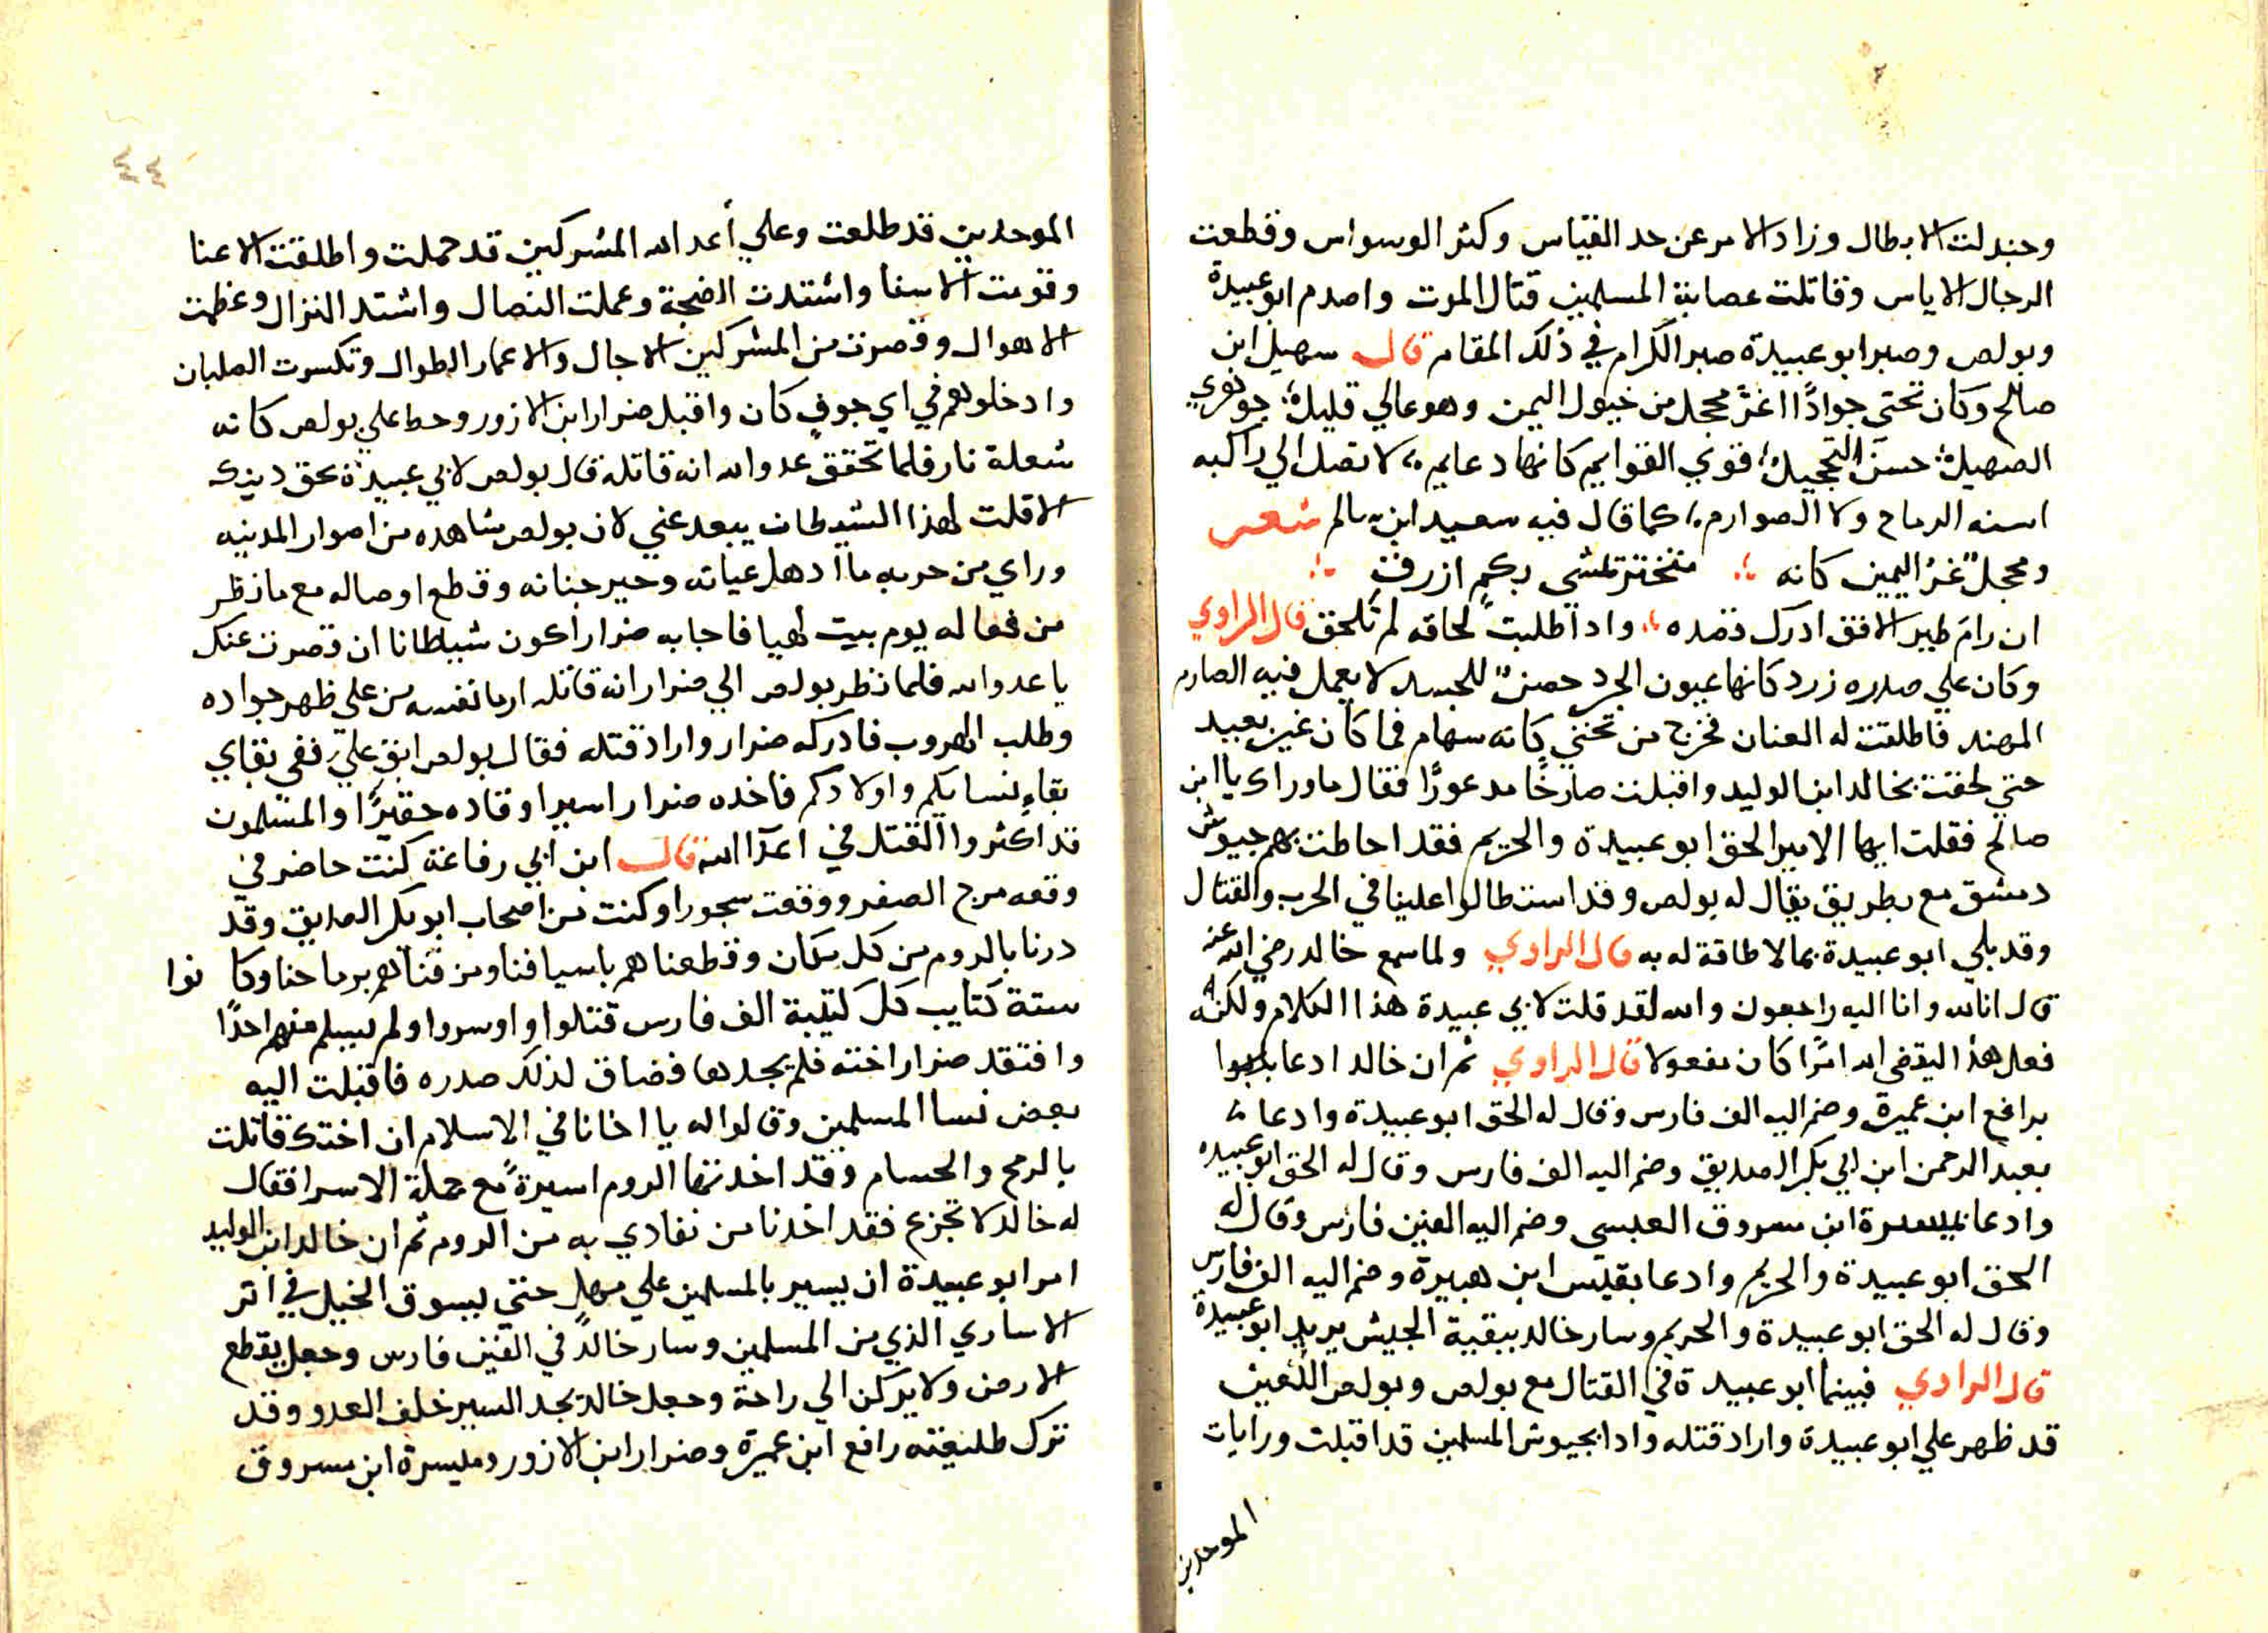 وجندلت الابطال وزاد الامر عن حد القياس وكثر الوسواس وقطعت
الرجال الاياس وقاتلت عصابة المسلمين قتال الموت واصدم ابو عبيدة
وبولص وصبر ابو عبيدة صبر الكرام في ذلك المقام قال سهيل ابن
صالح وكان تحتي جوادًا اغرَّ محجل من خيول اليمن وهو عالي قليلة جوهري
الصهيل حسنَ التحجيل قوني القوايم كانها دعايم لا تصل الي راكبه
اسنه الرماح ولا الصوارم كما قال فيه سعيد ابن سالم شعر
ومحجلٌ غرُ اليمين كانه متختر تمشى بكمٍ ازرقِ
ان رامَ طير الافق ادرك قصده واداطلبتَ لحاقه لم تلحق قال الراوي
وكان علي صدره زرد كانها عيون الجرد حصنٌ للجسد لا يعمل فيه الصارم
المهند فاطلقت له العنان فخرج من تحتي كانه سهام فما كان غير بعيد
حتي لحقت بخالد ابن الوليد واقبلت صارخًا مدعورًا فقال ما وراك يا ابن
صالح فقلت ايها الامير الحق ابو عبيدة والحريم فقد احاطت بهم جيوش
دمشق مع بطريق يقال له بولص وقد استطالوا علينا في الحرب والقتال
وقد بلي ابو عبيدة بما لا طاقة له به قال الراوي ولما سمع خالد رضي الله عنه
قال انا لله وانا اليه راجعون والله لقد قلت لابي عبيدة هذا الكلام ولكنه
فعل هذا ليقضى الله امرًا كان مفعولا قال الراوي ثم ان خالد ادعا
برافع ابن عميرة وضم اليه الف فارس وقال له الحق ابو عبيدة وادعا
بعبد الرحمن ابن ابي بكر الصديق وضم اليه الف فارس وقال له الحق ابو عبيده
وادعا بميسرة ابن مسروق العبسي وضم اليه الفين فارس وقال له
الحق ابو عبيدة والحريم وادعا بقيس ابن هبيرة وضم اليه الف فارس
وقال له الحق ابو عبيدة والحريم وسار خالد ببقية الجيش يريد ابو عبيدة
قال الراوي فبينما ابو عبيدة في القتال مع بولص وبولص اللعين
قد ظهر علي ابو عبيدة واراد قتله وادا بجيوش المسلمين قد اقبلت ورايات
الموحدين
٤٤
الموحدين قد طلعت وعلي أعد الله المشركين قد حملت واطلقت الاعنا
وقومت الاسنا واشتدت الضجة وعملت النصال واشتد النزال وعظمت
الاهوال وقصرت من المشركين الاجال والاعمار الطوال وتكسرت الصلبان
وادخلوهم في اي جوفٍ كان واقبل ضرار ابن الازور وحط علي بولص كانه
شعلة نار فلما تحقق عدو الله انه قاتله قال بولص لابي عبيدة بحق دينك
الا قلت لهذا الشيطان يبعد عني لان بولص شاهده من اصوار المدنيه
وراي من حربه ما ادهل عيانه وحير جنانه وقطع اوصاله مع ما نظر
من فعاله يوم بيت لهيا فاجابه ضرار اكون شيطانا ان قصرت عنك
يا عدو الله فلما نظر بولص الي ضرار انه قاتله ارما نفسه من على ظهر جواده
وطلب الهروب فادركه ضرار واراد قتله فقال بولص ابق عليَّ ففى بقاي
بقاءِ نسايكم واولادكم فاخده ضرار اسيرا وقاده حقيرًا والمسلمون
قد اكثروا القتل في اعدا الله قال ابن ابي رفاعة كنت حاضر في
وقعه مرج الصفر ووقعت سجورا وكنت من اصحاب ابو بكر الصديق وقد
درنا بالروم من كل مكان وقطعناهم باسيافنا ومزقناهم برماحنا وكا نوا
ستة كتايب كل كتيبة الف فارس قتلوا واوسروا ولم يسلم منهم احدًا
وافتقد ضرار اخته فلم يجدها فضاق لذلك صدره فاقبلت اليه
بعض نسا المسلمين وقالوا له يا اخانا في الاسلام ان اختك قاتلت
بالرمح والحسام وقد اخدتها الروم اسيرةً مع جملة الاسرا فقال
له خالد لا تجزع فقد اخدنا من نفادي به من الروم ثم ان خالد ابن الوليد
امر ابو عبيدة ان يسير بالمسلمين علي مهلٍ حتي يسوق الخيل في اتر
الاساري الذي من المسلمين وسار خالدٌ في الفين فارس وجعل يقطع
الارض ولا يركن الي راحة وجعل خالد يجد السير خلف العدو وقد
ترك طليعته رافع ابن عميرة وضرار ابن الازور وميسرة ابن مسروق